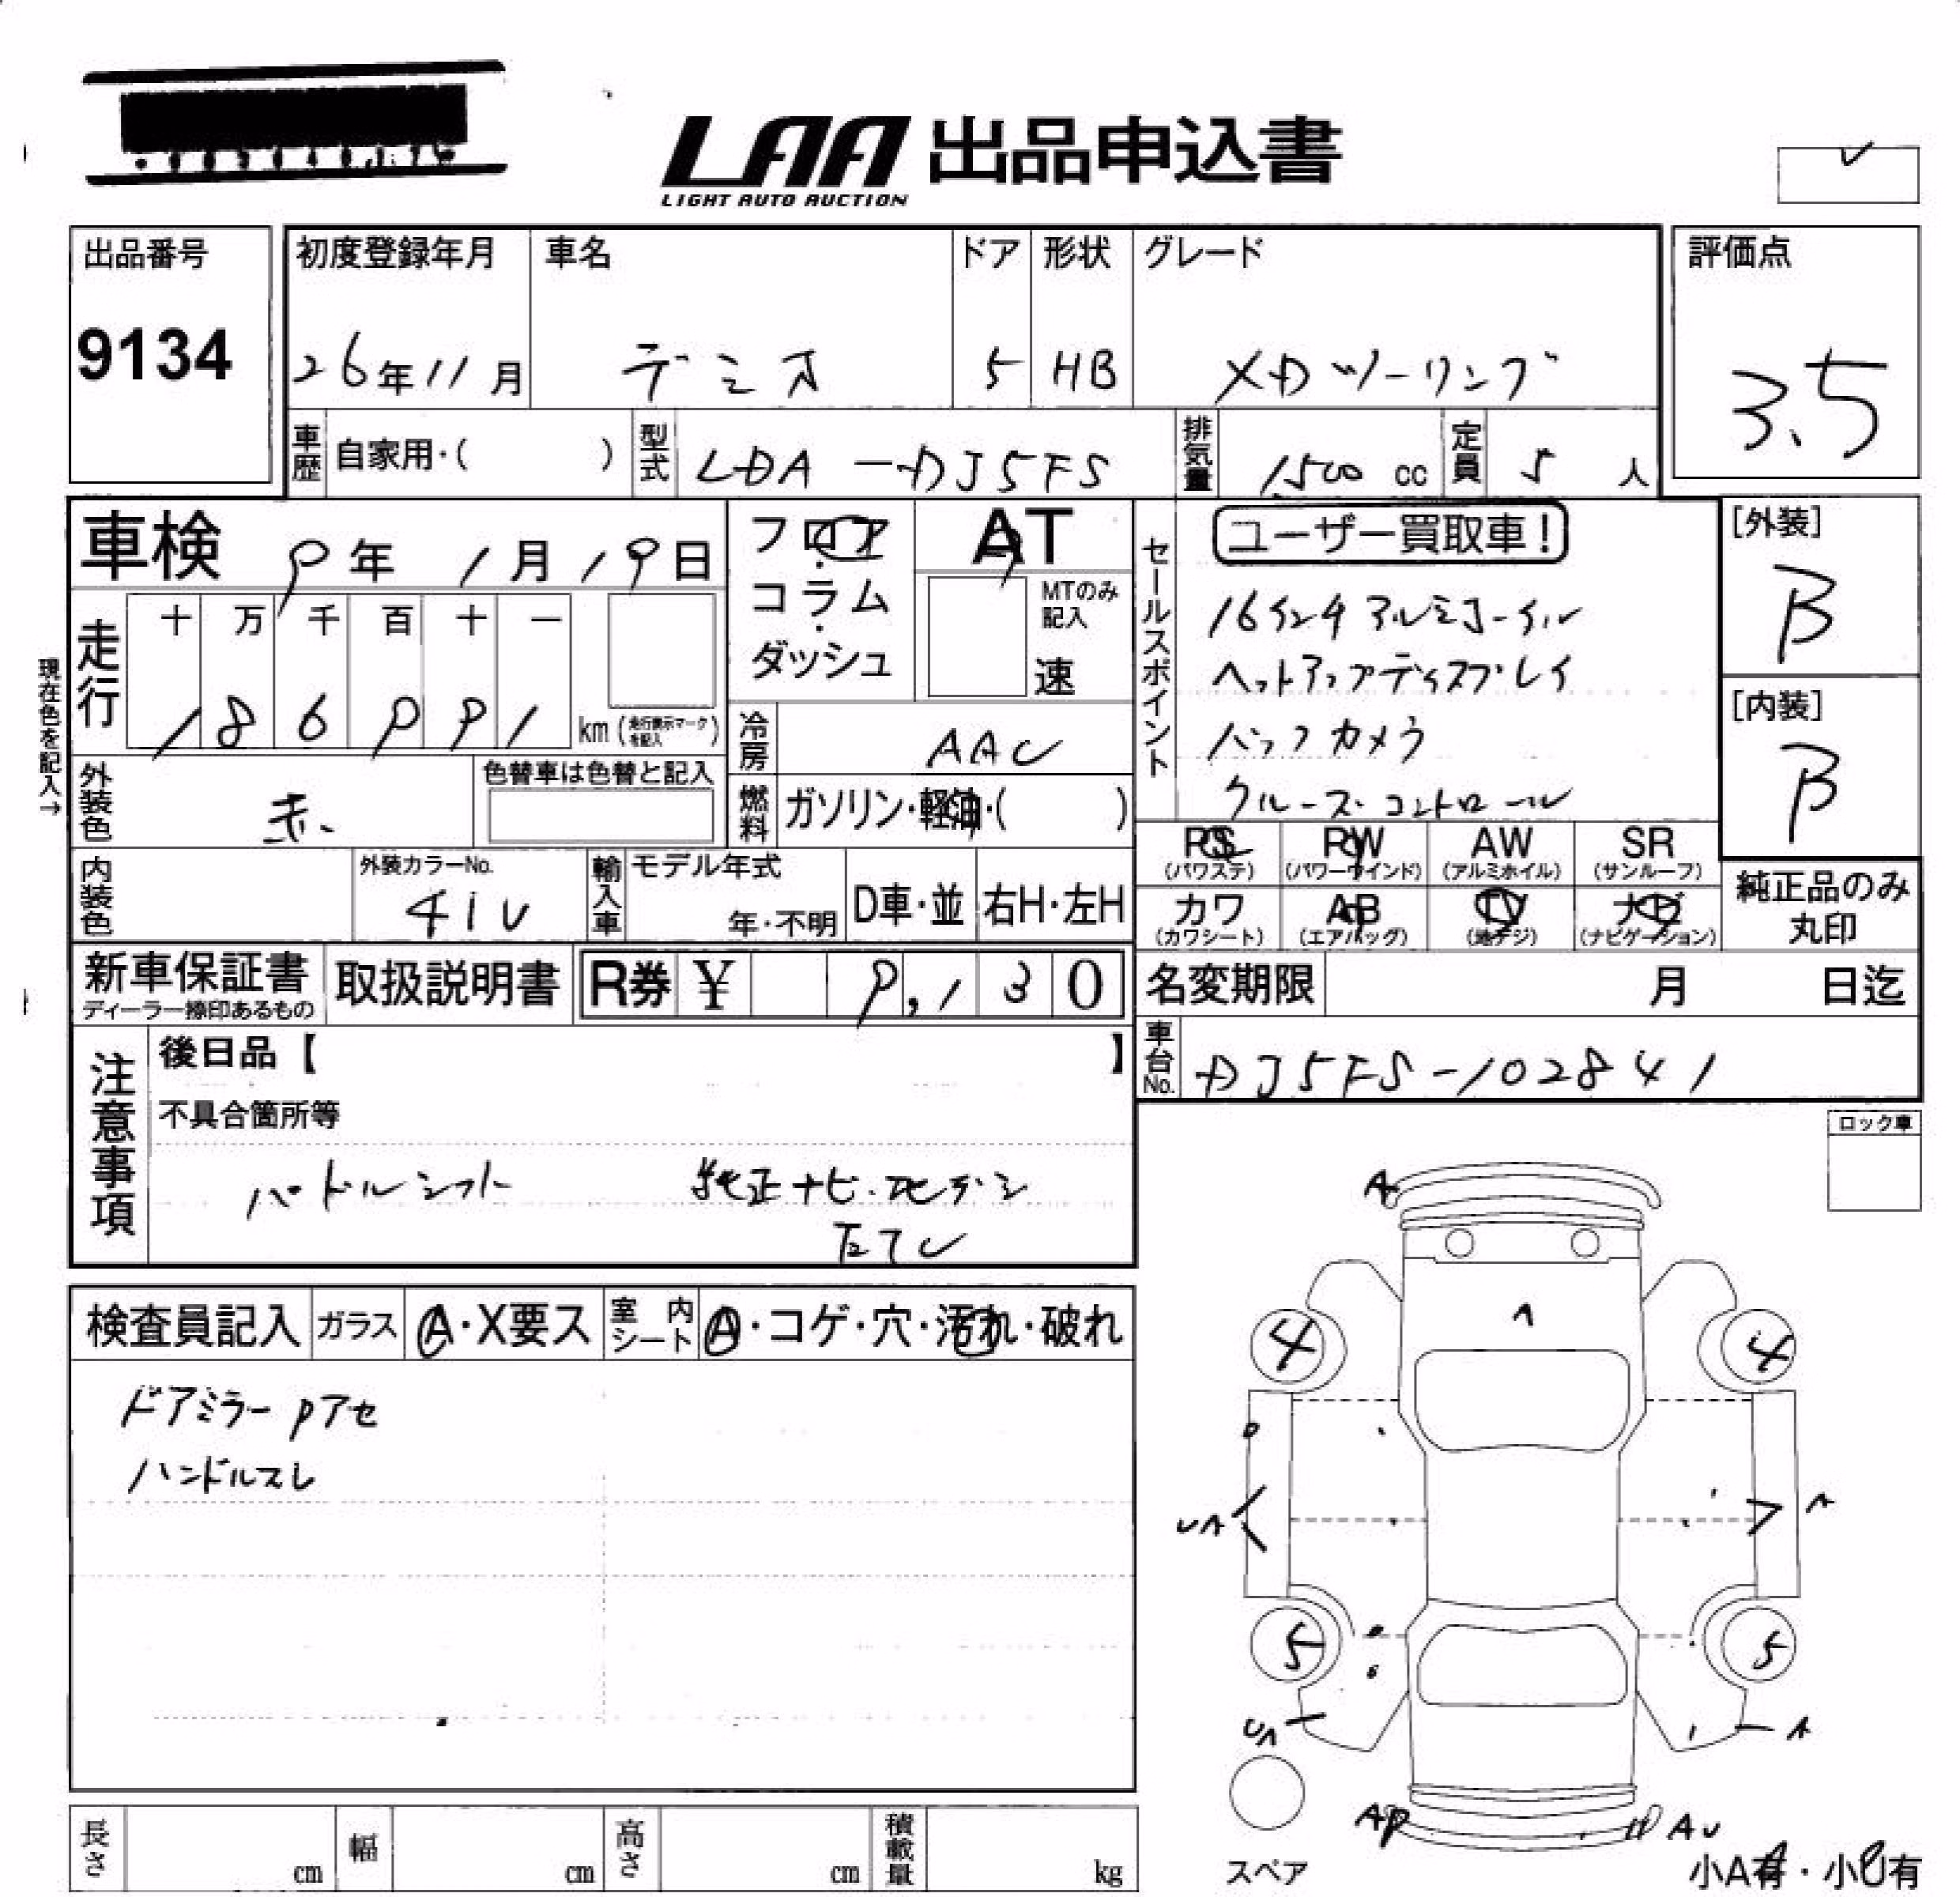 LAA 出品申込書
LIGHT AUTO AUCTION
出品番号 初度登録年月 車名 ドア 形状 グレード 評価点
9134 26年11月 デミオ 5 HB XDツーリング 3.5
車歴 自家用・( ) 型式 LDA-DJ5FS 排気量 1500 cc 定員 5 人
車検 9年 1月 19日
フロア・コラム・ダッシュ
AT
MTのみ記入
速
セールスポイント
ユーザー買取車!
16インチアルミホイール
ヘッドアップディスプレイ
バックカメラ
クルーズコントロール
[外装]
B
[内装]
B
現在色を記入→
走行 十 万 千 百 十 一
1 8 6 9 9 1 km (走行表示マークを記入)
冷房 AAC
外装色 赤 色替車は色替と記入
燃料 ガソリン・軽油・( )
PS (パワステ) PW (パワーウインド) AW (アルミホイル) SR (サンルーフ)
カワ (カワシート) AB (エアバッグ) TV (地デジ) ナビ (ナビゲーション)
純正品のみ丸印
内装色 外装カラーNo. 41V 輸入車 モデル年式 年・不明 D車・並 右H・左H
新車保証書 ディーラー捺印あるもの 取扱説明書 R券 ¥ 9,130
名変期限 月 日迄
車台No. DJ5FS-102841
注意事項
後日品【 】
不具合箇所等
パドルシフト 純正ナビ・地デジ
ロック車
検査員記入 ガラス A・X要ス 室内シート A・コゲ・穴・汚れ・破れ
ドアミラーPアセ
ハンドルスレ
A
A
4 4
UA A
5 5
UA A
AP AU
スペア
小A有・小U有
長さ cm 幅 cm 高さ cm 積載量 kg